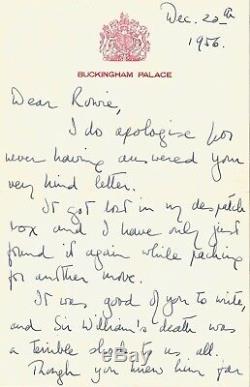 Dec. 20th
1956.
BUCKINGHAM PALACE
Dear Rowie,
I do apologise for
never having answered your
very kind letter.
It got lost in my despatch
box and I have only just
found it again while packing
for another move.
It was good of you to write,
and Sir William's death was
a terrible shock to us all.
Though you knew him far